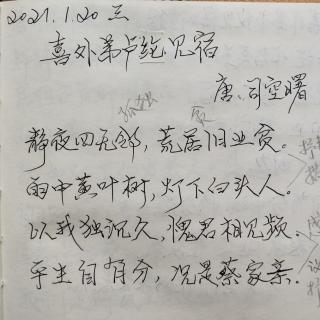 2021.1.20 三
喜外弟卢纶见宿
唐、司空曙
孤独
贫
静夜四无邻，荒居旧业贫。
雨中黄叶树，灯下白头人。
以我独沉久，愧君相见频。
平生自有分，况是蔡家亲。